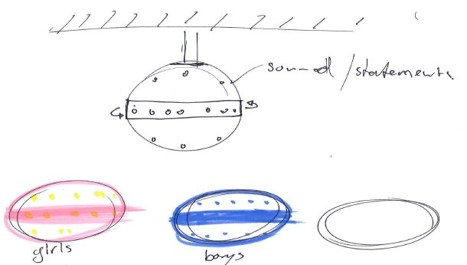 sound/statements
girls
boys